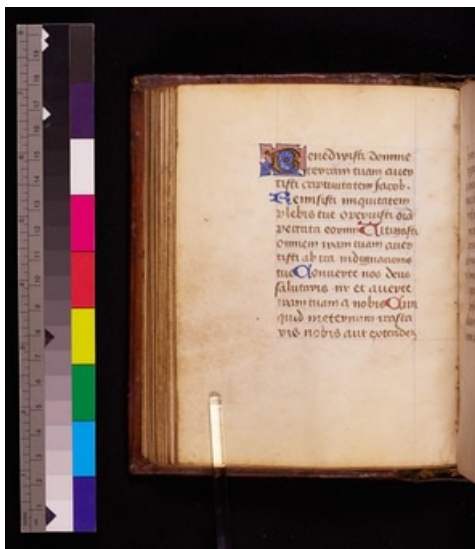 Benedixisti domine
terram tuam aver
tisti captivitatem Jacob.
Remisisti iniquitatem
plebis tue operuisti oīa
peccata eorum Mitigasti
omnem iram tuam aver
tisti ab ira indignationis
tue Converte nos deus
salutaris nr et averte
iram tuam a nobis Nun
quid in eternum irasce
ris nobis aut extendes